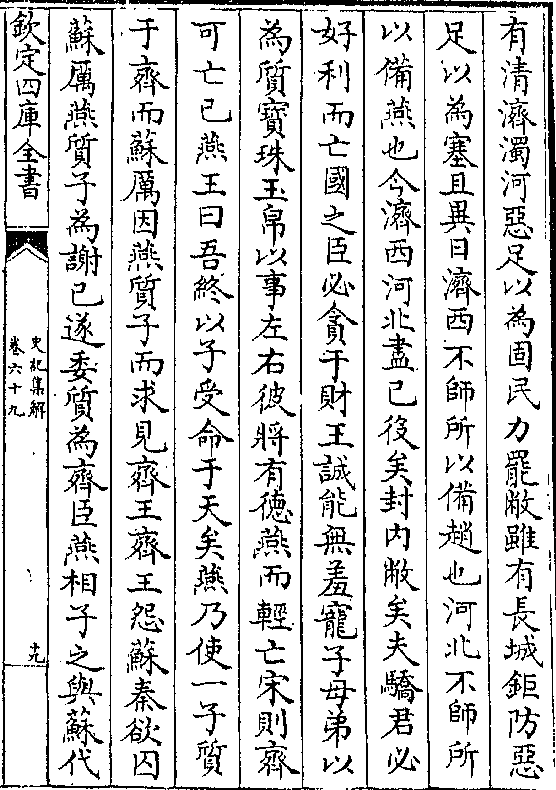 有清濟濁河惡足以為固民力罷敝雖有長城鉅防惡
足以為塞且異日濟西不師所以備趙也河北不師所
以備燕也今濟西河北盡已役矣封内敝矣夫驕君必
好利而亡國之臣必貪于財王誠能無羞寵子母弟以
為質寳珠玉帛以事左右彼將有徳燕而輕亡宋則齊
可亡已燕王曰吾終以子受命于天矣燕乃使一子質
于齊而蘇厲因燕質子而求見齊王齊王怨蘇秦欲囚
蘇厲燕質子為謝已遂委質為齊臣燕相子之與蘇代
欽定四庫全書
史記集解
卷六十九
十九